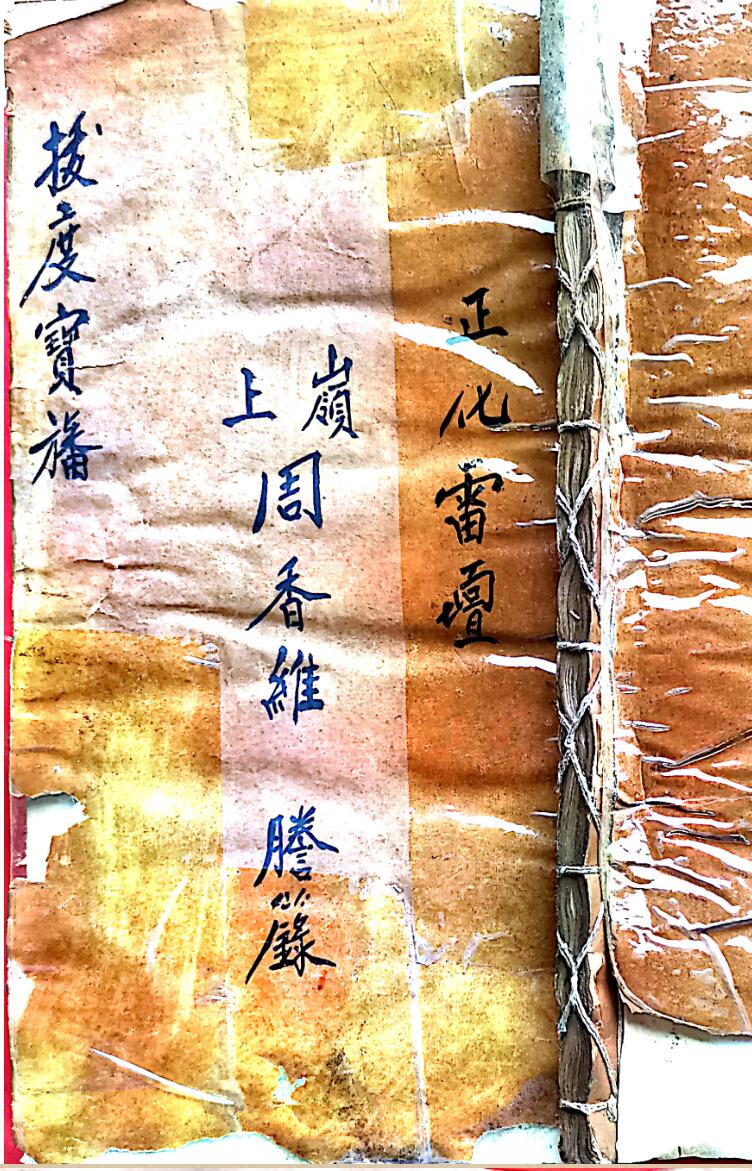 正化雷壇
嶺上
周香維 謄籙
拔度寶旛